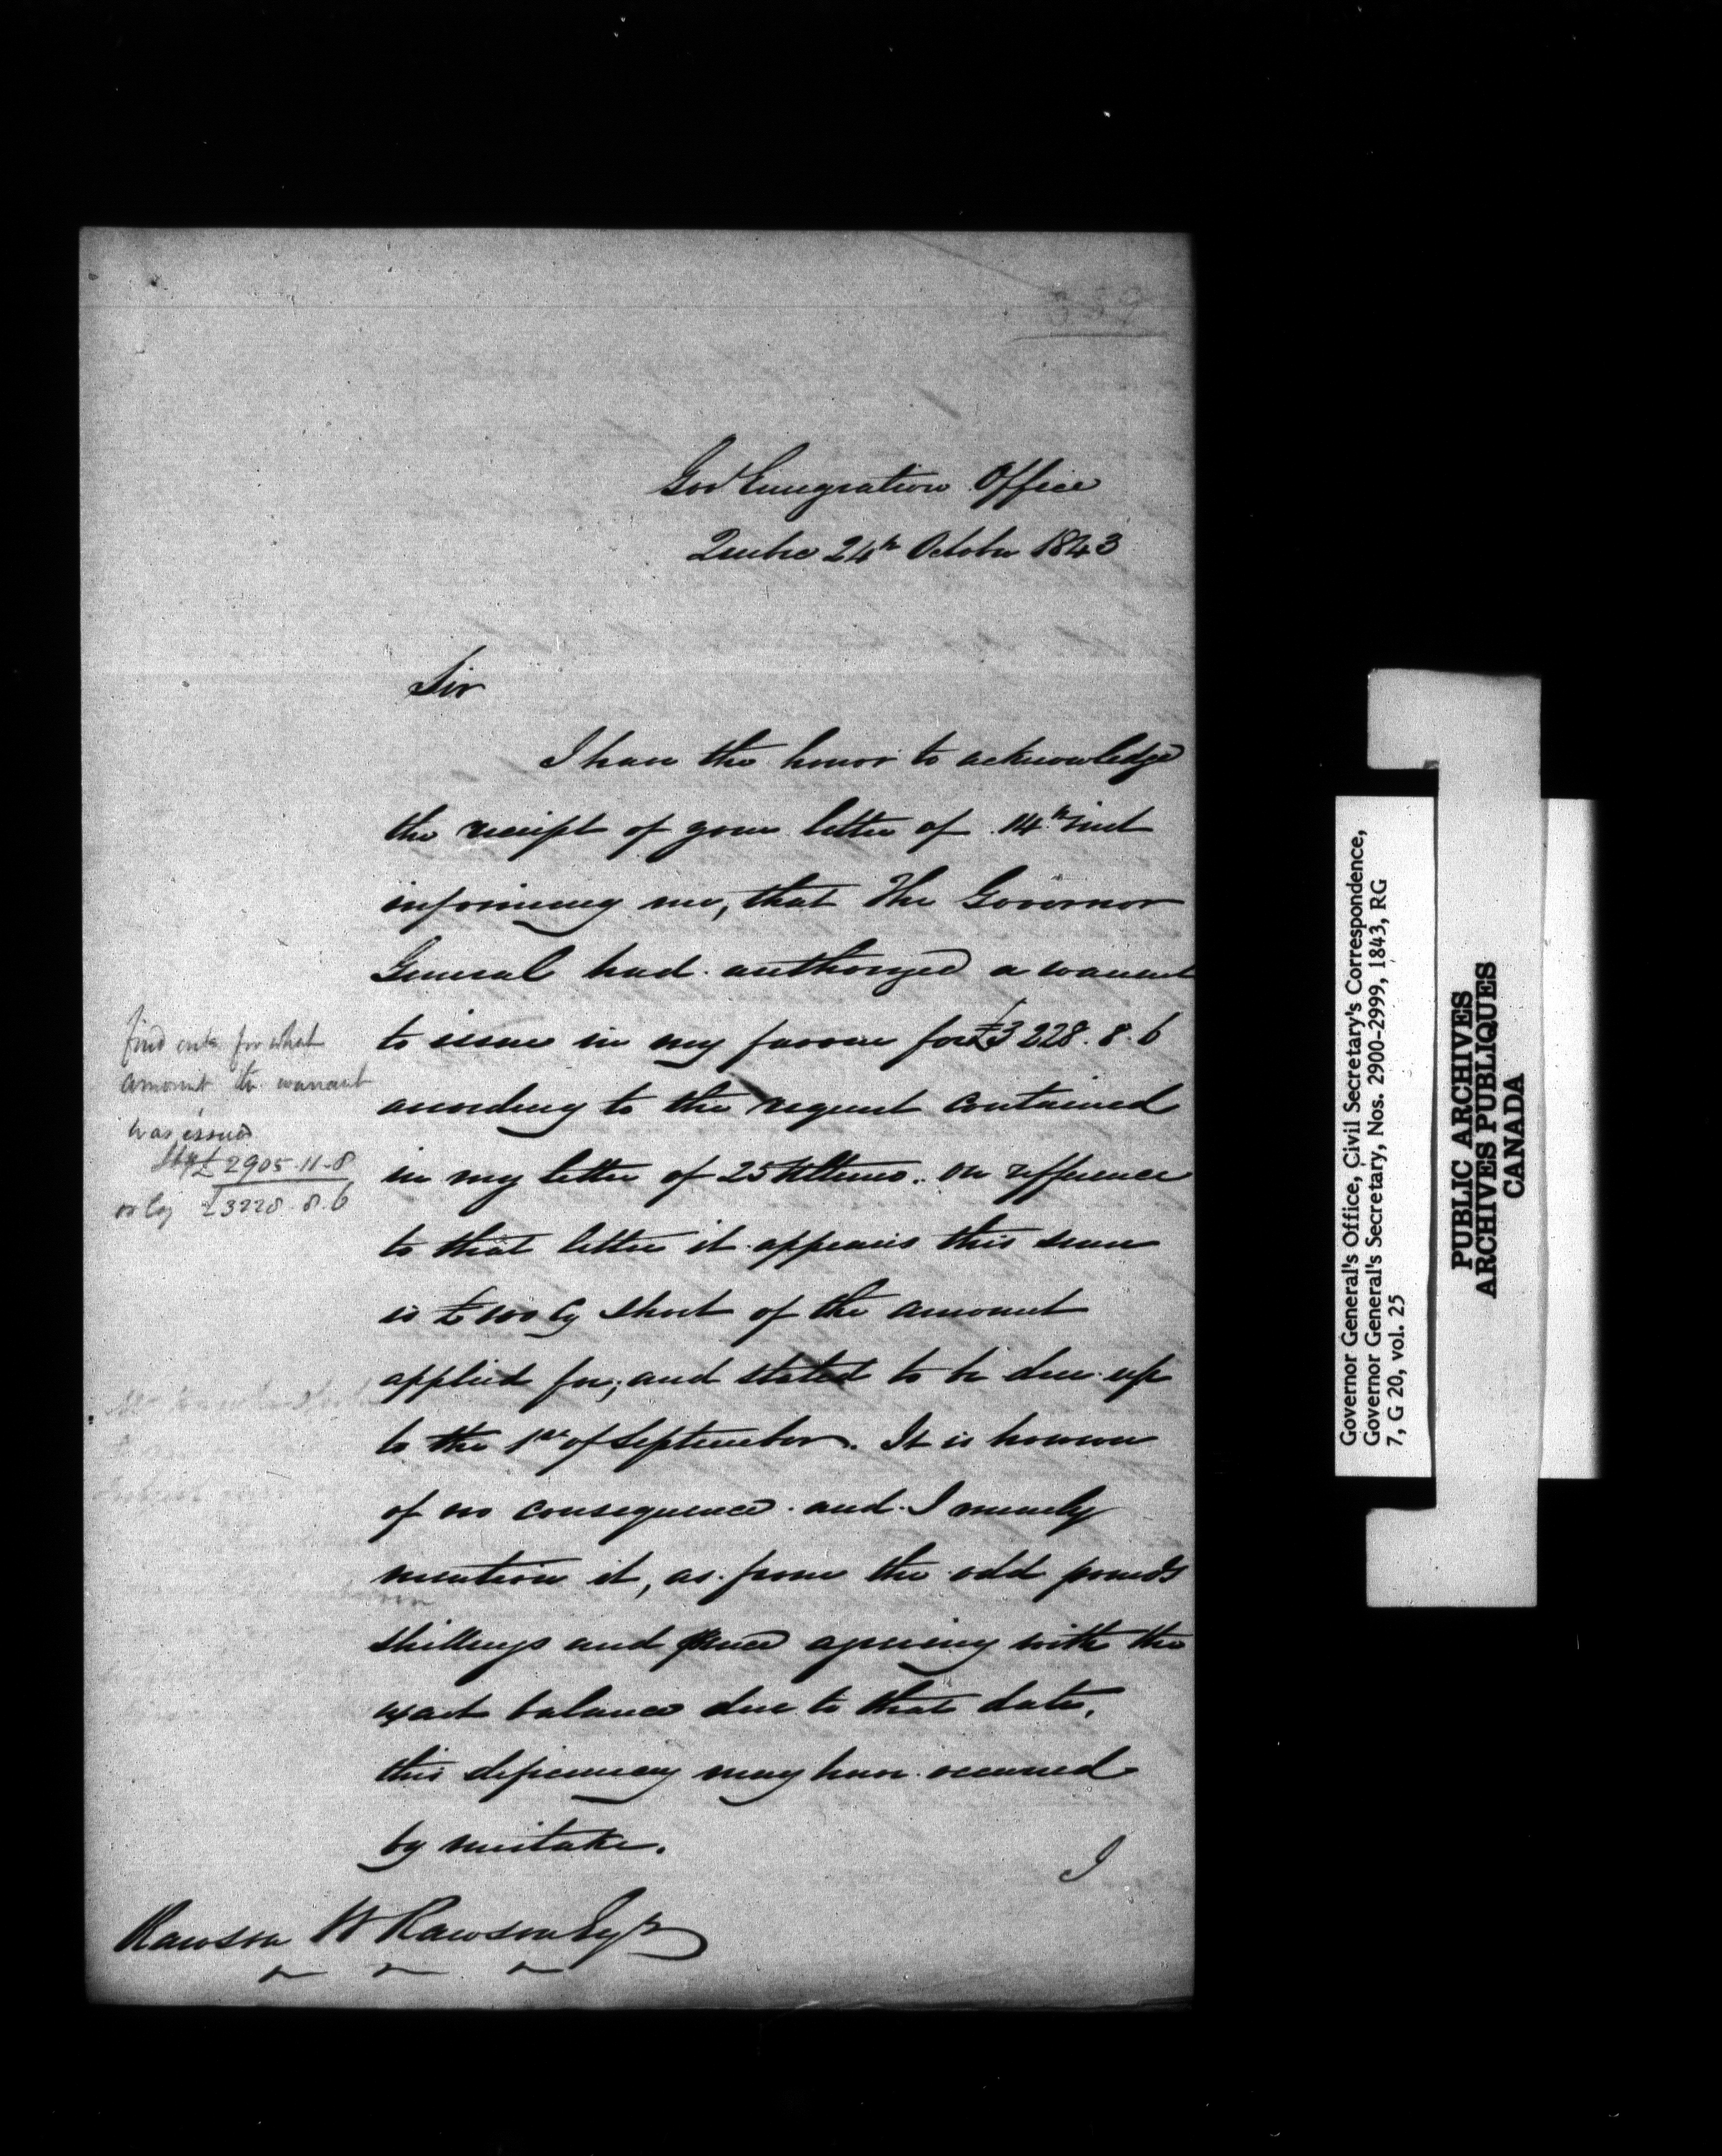 359
Govt Emigration Office
Quebec 24th October 1843
Sir
I have the honor to acknowledge
the receipt of your letter of 14th inst
informing me, that The Governor
General had authorized a warrant
to issue in my favour for £3228.8.6
according to the request contained
in my letter of 25 Ultimo. On refference
to that letter it appears this sum
is £100 Cy short of the amount
applied for, and stated to be due up
to the 1st of September. It is however
of no consequence and I merely
mention it, as from the odd pounds
shillings and pence agreeing with the
exact balance due to that date,
this defficiency may have occurred
by mistake.
I
Rawson W Rawson Esqr
find out for what
amount the warrant
was issued
Stg £2905.11.8
or Cy £3228.8.6
Governor General's Office, Civil Secretary's Correspondence,
Governor General's Secretary, Nos. 2900-2999, 1843, RG
7, G 20, vol. 25
PUBLIC ARCHIVES
ARCHIVES PUBLIQUES
CANADA